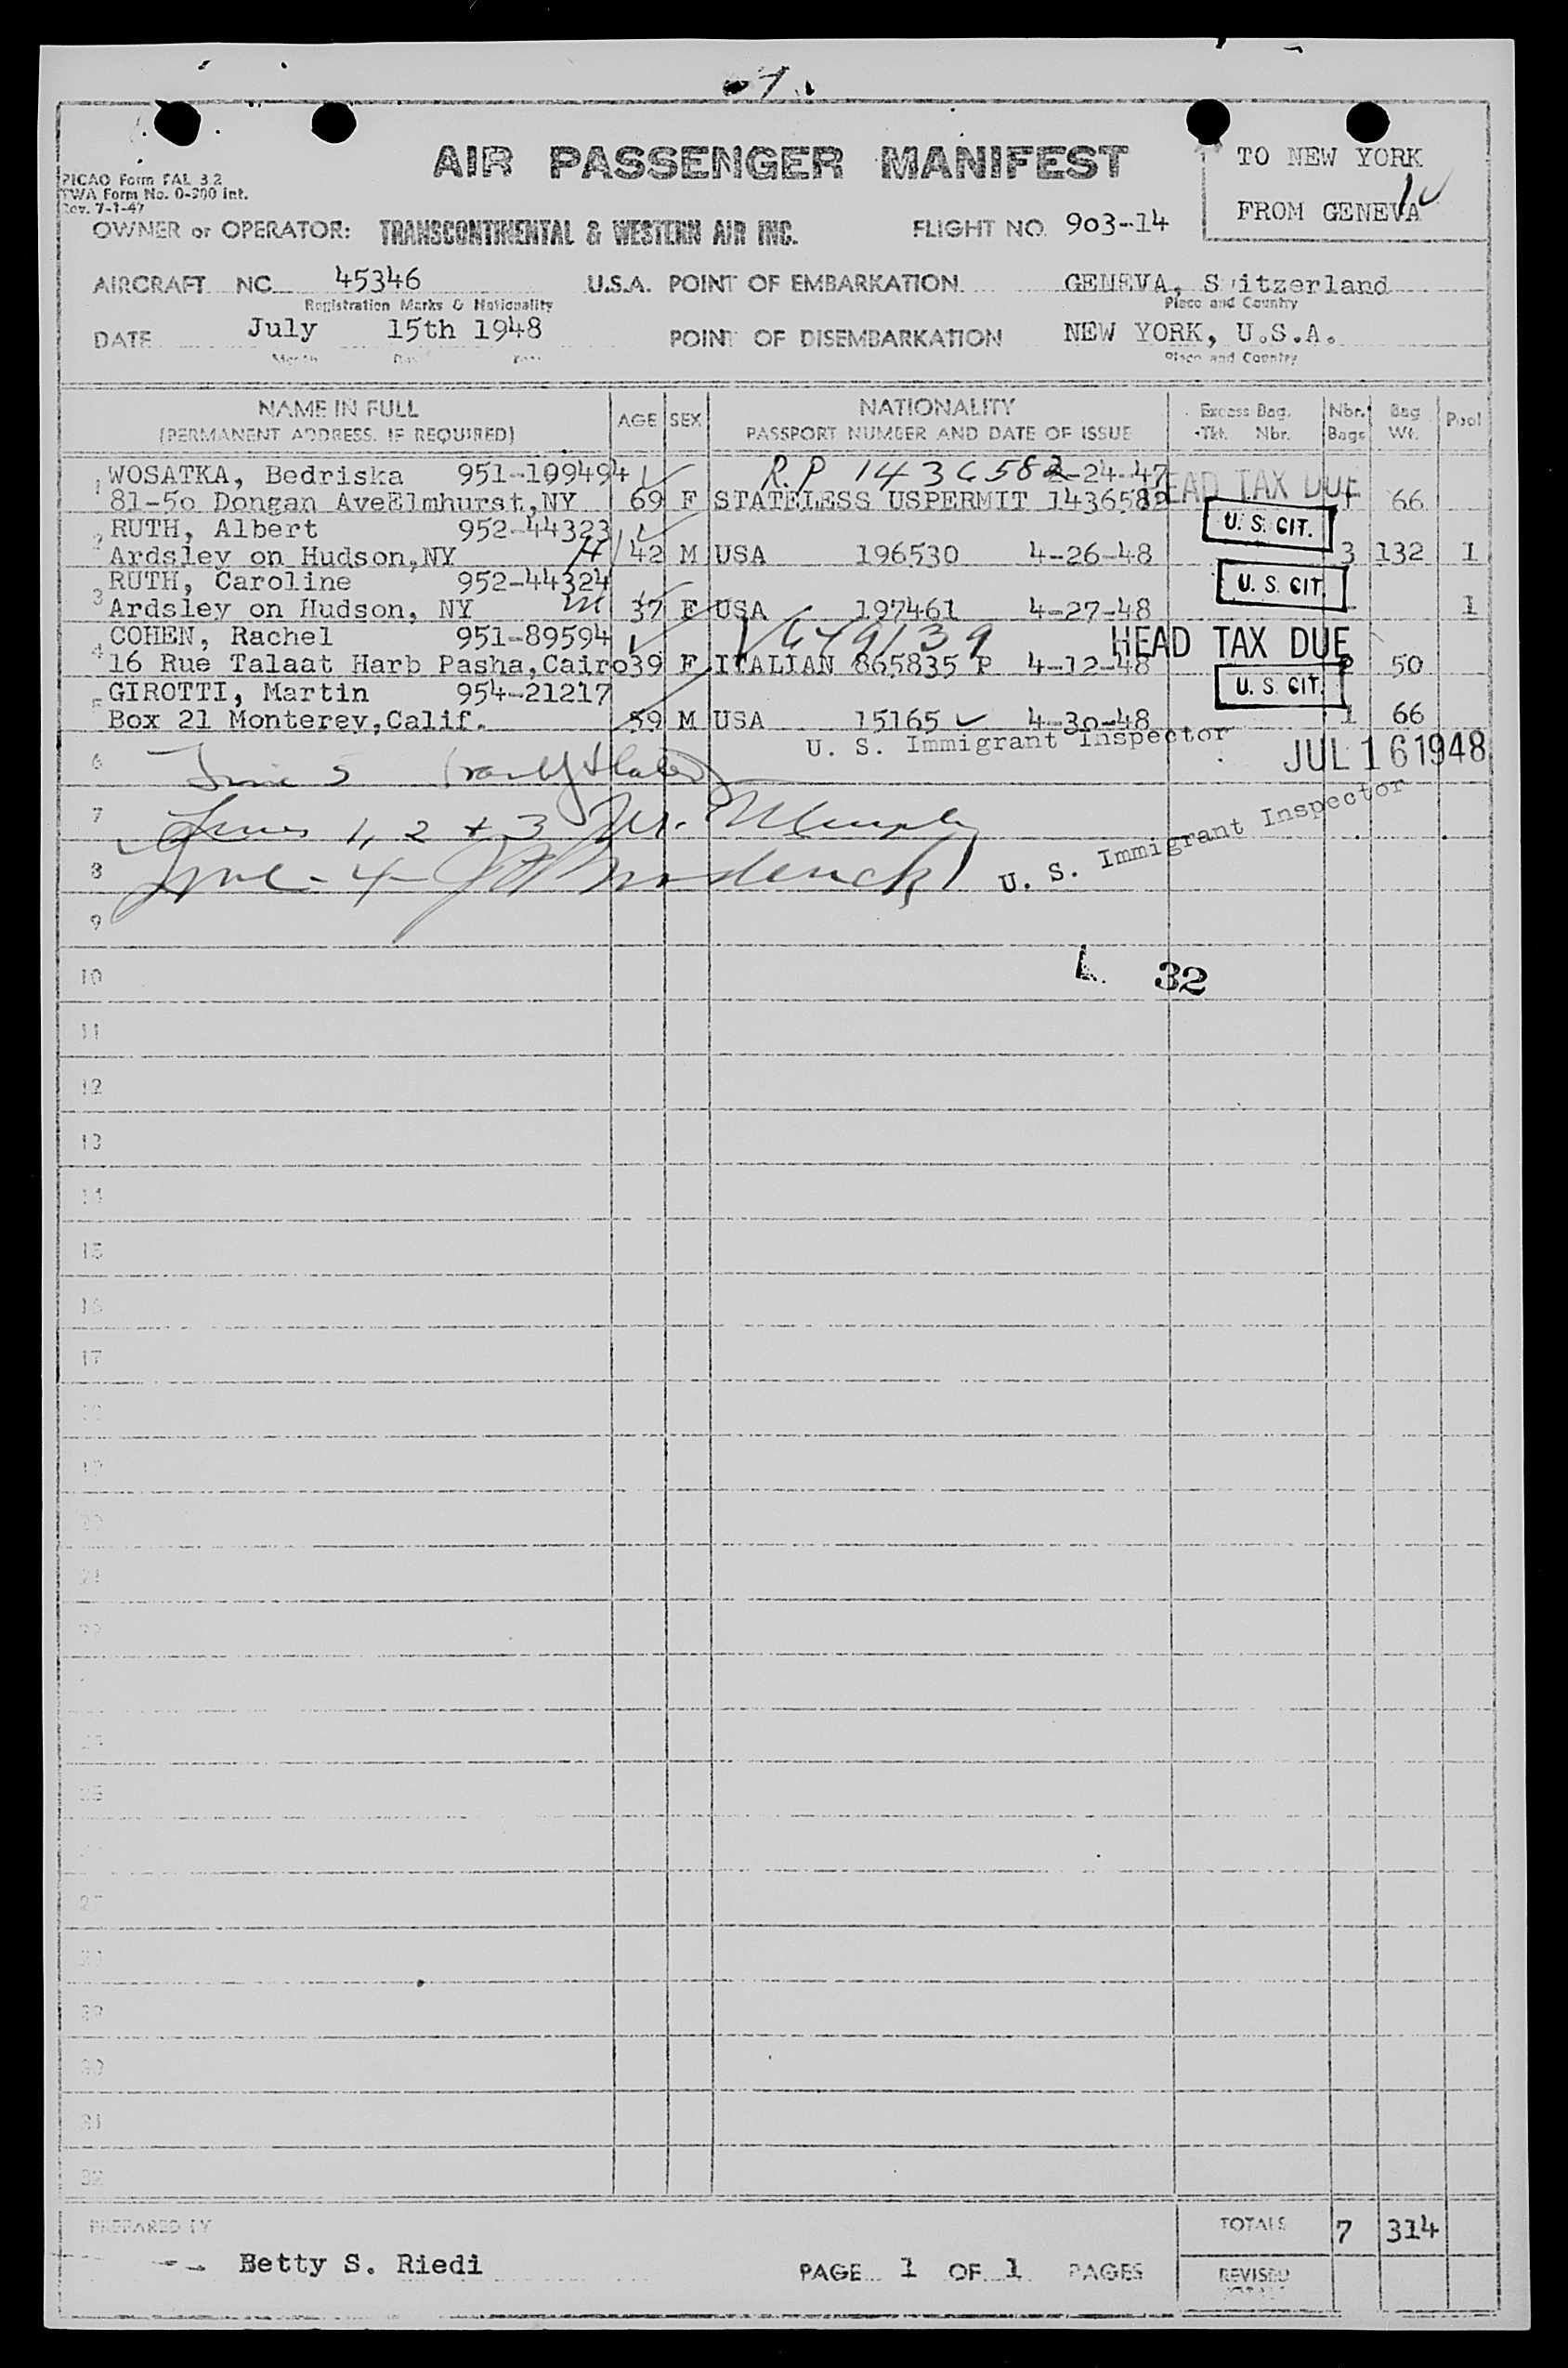 AIR PASSENGER MANIFEST
TO NEW YORK
FROM GENEVA
PICAO Form FAL 3.2
TWA Form No. 0-200 Int.
Rev. 7-1-47
OWNER or OPERATOR: TRANSCONTINENTAL & WESTERN AIR INC. FLIGHT NO. 903-14
AIRCRAFT NC 45346 U.S.A. POINT OF EMBARKATION GENEVA, Switzerland
Registration Marks & Nationality Place and Country
DATE July 15th 1948 POINT OF DISEMBARKATION NEW YORK, U.S.A.
Month Day Year Place and Country
NAME IN FULL AGE SEX NATIONALITY Excess Bag. Nbr. Bag Pool
(PERMANENT ADDRESS, IF REQUIRED) PASSPORT NUMBER AND DATE OF ISSUE Tkt. Nbr. Bags Wt.
1 WOSATKA, Bedriska 951-109494 R.P 1436582 2-24-47 HEAD TAX DUE
81-50 Dongan Ave Elmhurst, NY 69 F STATELESS USPERMIT 1436582 1 66
2 RUTH, Albert 952-44323 U. S. CIT.
Ardsley on Hudson, NY 42 M USA 196530 4-26-48 3 132 1
3 RUTH, Caroline 952-44324 U. S. CIT.
Ardsley on Hudson, NY 37 F USA 197461 4-27-48 1
4 COHEN, Rachel 951-89594 HEAD TAX DUE
16 Rue Talaat Harb Pasha, Cairo 39 F ITALIAN 865835 P 4-12-48 2 50
5 GIROTTI, Martin 954-21217 U. S. CIT.
Box 21 Monterey, Calif. 59 M USA 15165 4-30-48 1 66
U. S. Immigrant Inspector
6 Line 5 JUL 16 1948
7 Lines 1, 2 + 3 M. Murphy
8 Line - 4 U. S. Immigrant Inspector
9
10 L. 32
11
12
13
14
15
16
17
18
19
20
21
22
25
27
30
31
32
PREPARED BY TOTALS 7 314
Betty S. Riedi PAGE 1 OF 1 PAGES REVISED TOTALS